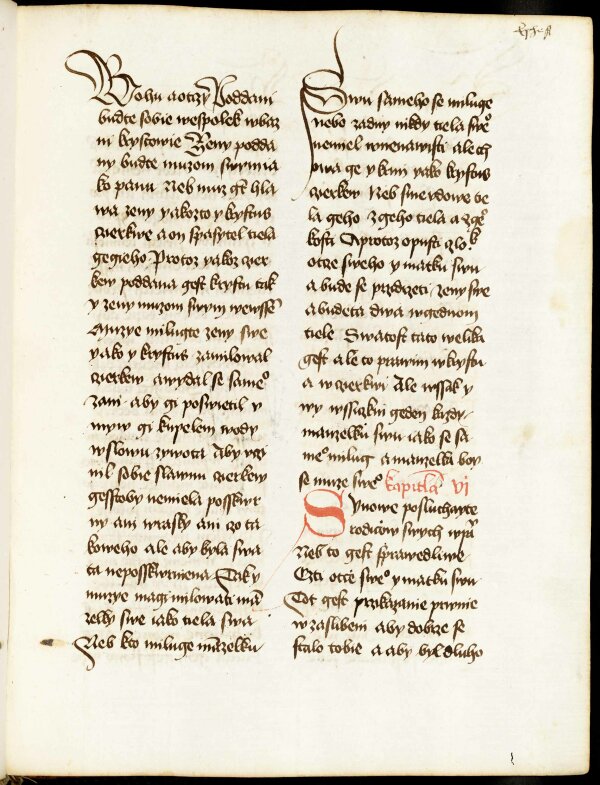 Bohu a otczy Poddani
budte sobie wespolek w baz
ni krystowie Zeny podda
ny budte muzom swym ia
ko panu Neb muz gt hla
wa zeny yakozto y krystus
czierkwe a on spasytel tiela
gegieho Protoz yakoz czier
kew poddana gest krystu tak
y zeny muzom swym wewsse
Muzye milugte zeny swe
yako y krystus zamilowal
czierkew a wydal se same°
za ni aby gi poswietil y
myw gi kupelem wody
w slowu zywota Aby vczi
nil sobie slawnu czierkew
gessto by nemiela posskwr
ny ani wrasky ani czo ta
koweho ale aby byla swa
ta neposskwrniena Tak y
muzye magi milowati ma
zelky swe iako tiela swa
Neb kto miluge mazelku
Swu sameho se miluge
nebo zadny nikdy tiela swe°
nemiel w nenawisti ale ch
owa ge y krmi yako krystus
czierkew Neb sme vdowe te
la geho z geho tiela a z ge°
kosti A protoz opusti czlok
otcze sweho y matku swu
a bude se przidrzeti zeny swe
a budeta dwa w gednom
tiele Swatost tato welika
gest ale to prawim w krystu
a w czierkwi Ale wssak y
wy wssiczkni geden kazdy
manzelku swu iako se sa
me° milug a manzelka boy
se muze swe° kapitla vi
Synowe posluchayte
rodiczow swych w pa
Neb to gest sprawedliwe
Czti otcze swe° y matku swu
Tot gest przikazanie prwnie
w zaslibeni aby dobrze se
stalo tobie a aby byl dluho